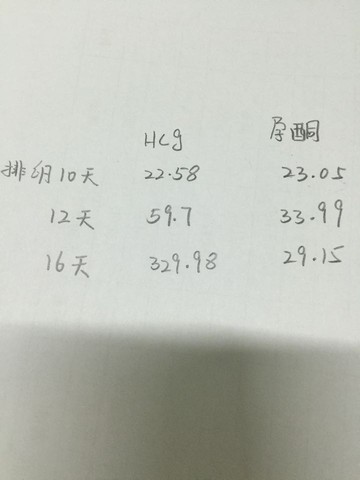 HCg 孕酮
排卵10天 22.58 23.05
12天 59.7 33.99
16天 329.98 29.15